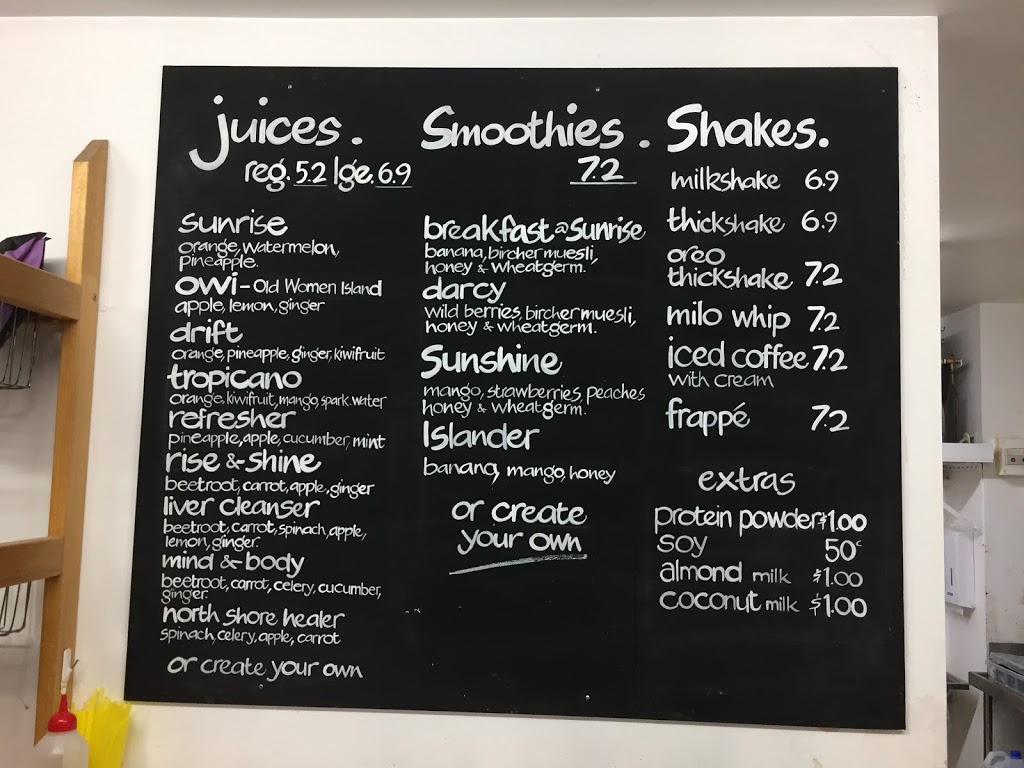 juices.
reg. 5.2 lge. 6.9
sunrise
orange, watermelon,
pineapple.
owi - Old Women Island
apple, lemon, ginger
drift
orange, pineapple, ginger, kiwifruit
tropicano
orange, kiwifruit, mango, spark. water
refresher
pineapple, apple, cucumber, mint
rise & Shine
beetroot, carrot, apple, ginger
liver cleanser
beetroot, carrot, spinach, apple,
lemon, ginger.
mind & body
beetroot, carrot, celery, cucumber,
ginger.
north shore healer
spinach, celery, apple, carrot
or create your own
Smoothies.
7.2
breakfast @ Sunrise
banana, bircher muesli,
honey & wheatgerm.
darcy
wild berries, bircher muesli,
honey & wheatgerm.
Sunshine
mango, strawberries, peaches
honey & wheatgerm.
Islander
banana, mango, honey
or create
your own
Shakes.
milkshake 6.9
thickshake 6.9
oreo
thickshake 7.2
milo whip 7.2
iced coffee 7.2
with cream
frappé 7.2
extras
protein powder $1.00
soy 50c
almond milk $1.00
coconut milk $1.00